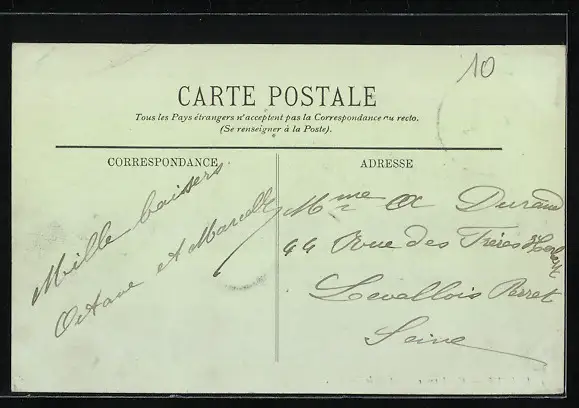 10
CARTE POSTALE
Tous les Pays étrangers n'acceptent pas la Correspondance au recto.
(Se renseigner à la Poste).
CORRESPONDANCE
Mille baisers
Octave et Marcelle
ADRESSE
Mme A Durand
44 Rue des Frères Herbert
Levallois Perret
Seine